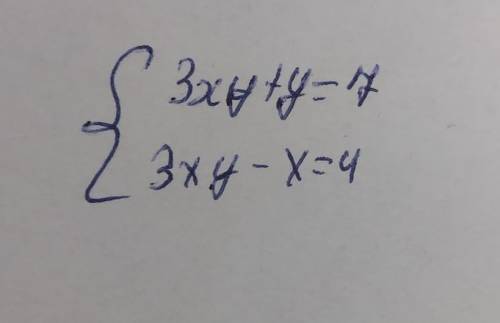 { 3xy+y=7
3xy-x=4